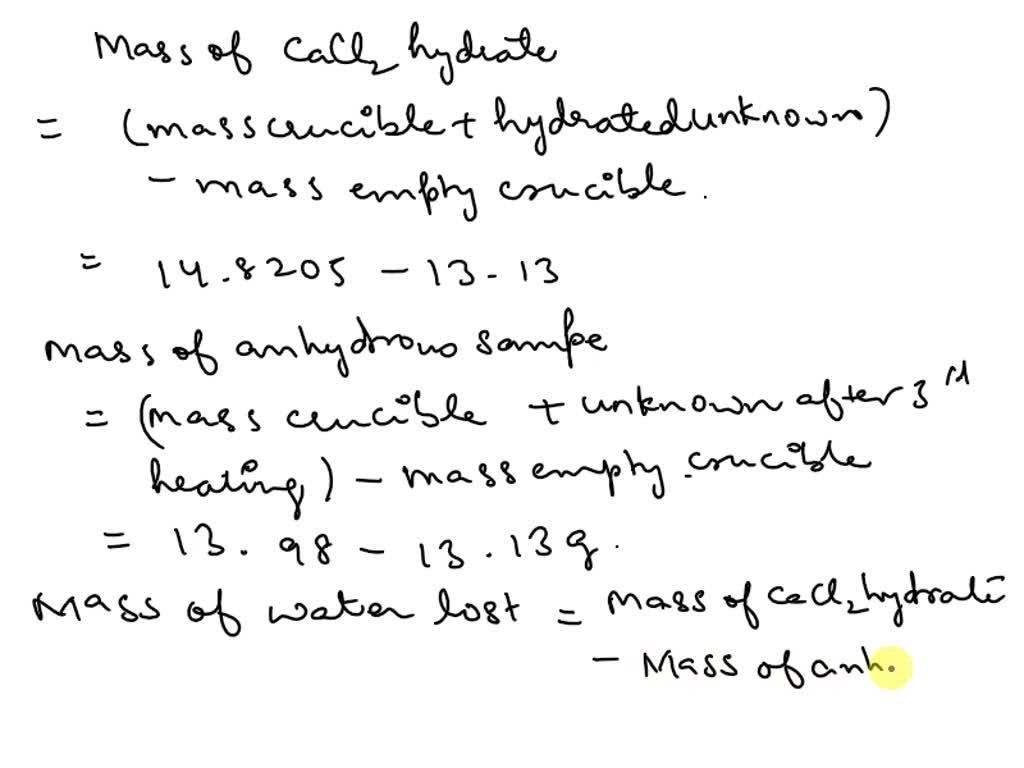 Mass of CaCl2 hydrate
= (mass crucible + hydrated unknown)
- mass empty crucible.
= 14.8205 - 13.13
mass of anhydrous sampe
= (mass crucible + unknown after 3rd
heating) - mass empty crucible
= 13.98 - 13.13g.
Mass of water lost = Mass of CaCl2 hydrate
- Mass of anh.